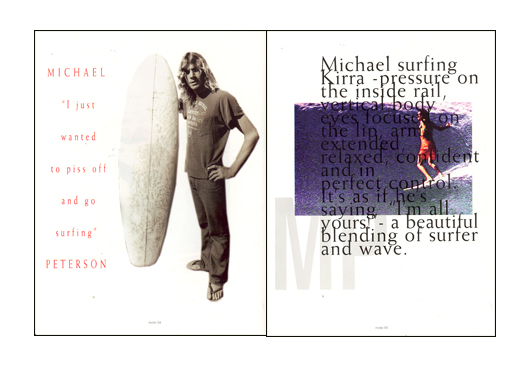 MICHAEL
"I just
wanted
to piss off
and go
surfing"
PETERSON
Michael surfing
Kirra -pressure on
the inside rail,
vertical body
eyes focused on
the lip, arm
extended,
relaxed, confident
and in
perfect control.
It's as if he's
saying, "I'm all
yours' - a beautiful
blending of surfer
and wave.
MP